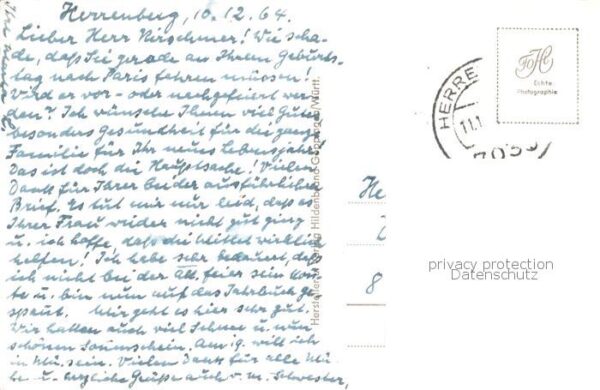 Herrenberg, 10.12.64.
Lieber Herr Kirschmer! Wie scha-
de, daß Sie gerade an Ihrem Geburts-
tag nach Paris fahren müssen!
Wird er vor- oder nachgefeiert wer-
den? Ich wünsche Ihnen viel Gutes
besonders Gesundheit für die ganze
Familie für Ihr neues Lebensjahr!
Das ist doch die Hauptsache! Vielen
Dank für Ihrer beider ausführlichen
Brief. Es tut mir nur leid, daß es
Ihrer Frau wieder nicht gut ging
u. ich hoffe, daß die Mittel wirklich
helfen! Ich habe sehr bedauert, daß
ich nicht bei der feier sein konn-
te u. bin nun auf das Jahrbuch ge-
spannt. Mir geht es hier sehr gut.
Wir hatten auch viel Schnee u. nun
schönen Sonnenschein. Am 19. will ich
in Mü. sein. Vielen Dank für alle Mü-
he u. herzliche Grüße auch v. m. Schwester,
Ihre
Hersteller u. Verlag Hildenbrand Göppingen/Württ.
Echte
Photographie
HERRE
11.1
7033
He
8
privacy protection
Datenschutz